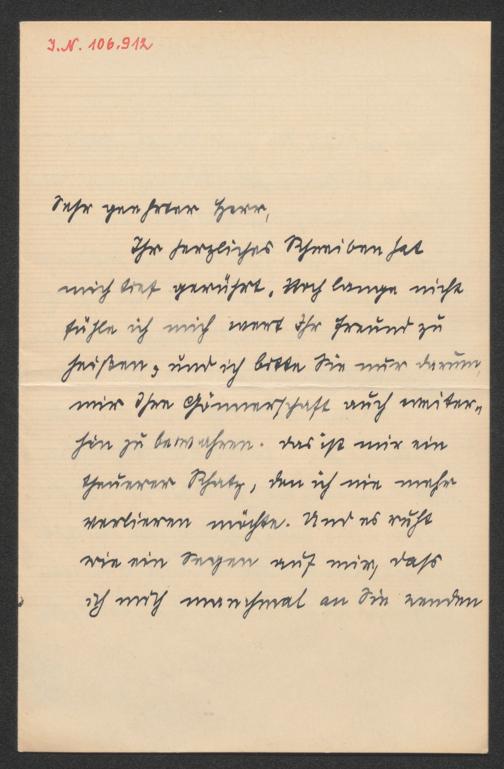 I.N. 106.912
Sehr geehrter Herr,
Ihr herzliches Schreiben hat
mich tief gerührt. Noch lange nicht
fühle ich mich wert Ihr Freund zu
heißen, und ich bitte Sie nur darum,
mir Ihre Gönnerschaft auch weiter-
hin zu bewahren. Das ist mir ein
theuerer Schatz, den ich nie mehr
verlieren möchte. Und es ruht
wie ein Segen auf mir, dass
ich mich manchmal an Sie wenden